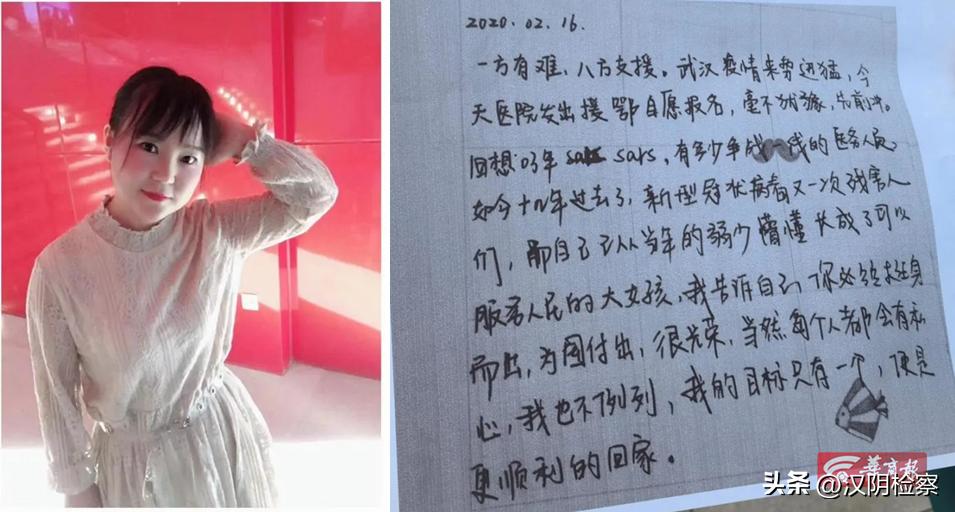 2020.02.16.
一方有难、八方支援。武汉疫情来势迅猛，今
天医院发出援鄂自愿报名，毫不犹豫，先前冲。
回想03年 sars，有多少争战一线的医务人员
如今十几年过去了，新型冠状病毒又一次残害人
们，而自己已从当年的弱少懵懂长成了可以
服务人民的大女孩，我告诉自己，你必须挺身
而出，为国付出，很光荣，当然每个人都会有私
心，我也不例列，我的目标只有一个，便是
更顺利的回家。
華商報
头条 @汉阴检察